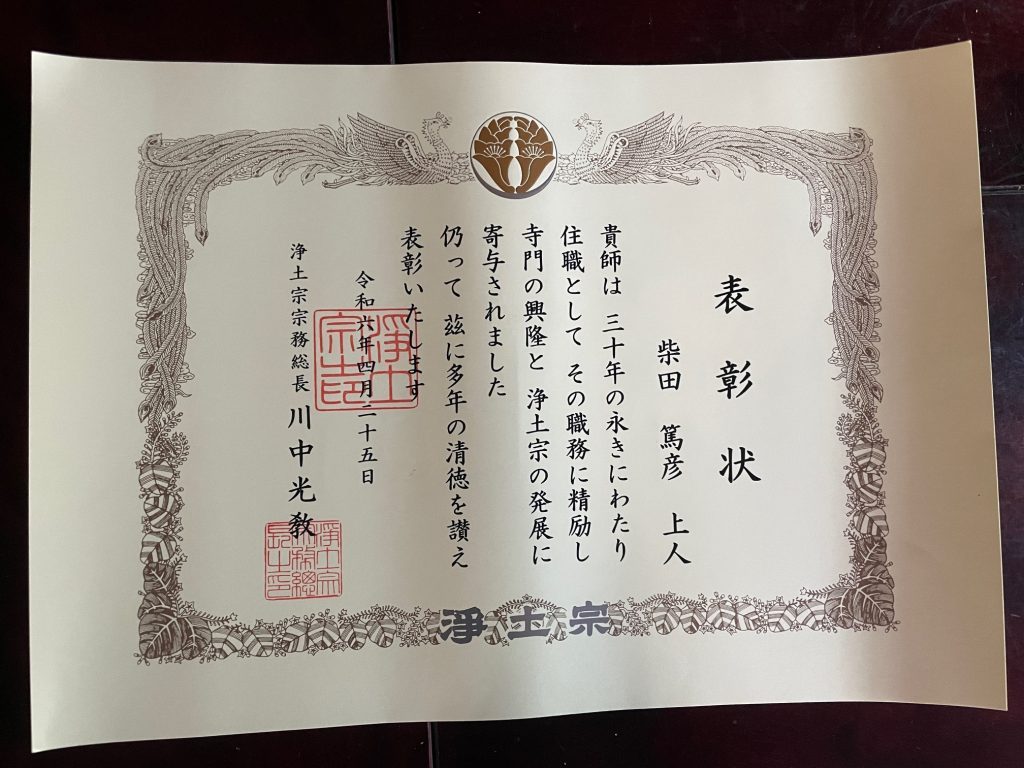 表彰状
柴田 篤彦 上人
貴師は 三十年の永きにわたり
住職として その職務に精励し
寺門の興隆と 浄土宗の発展に
寄与されました
仍って 茲に多年の清徳を讃え
表彰いたします
令和六年四月二十五日
浄土宗宗務総長 川中光敎
淨土宗印
淨土宗宗務總長之印
淨土宗